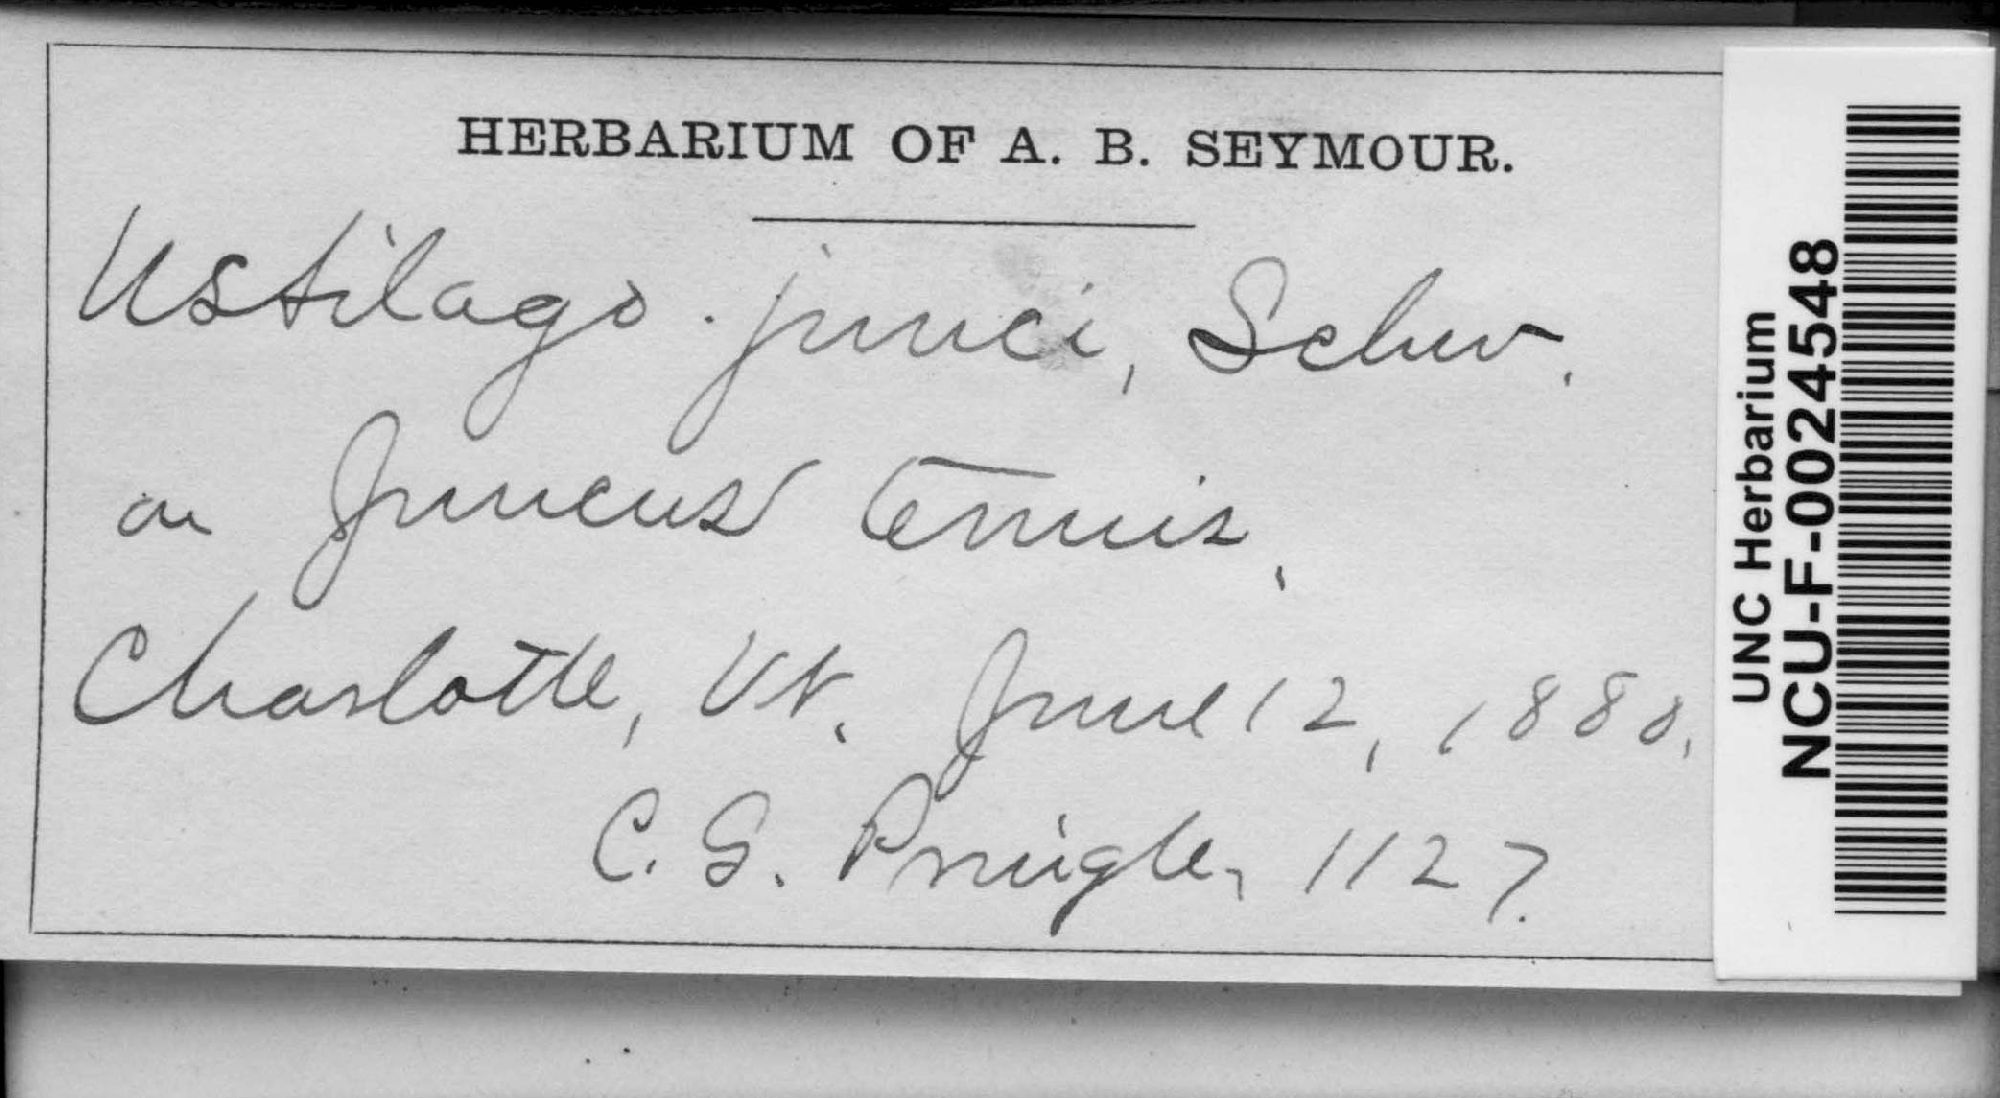 HERBARIUM OF A. B. SEYMOUR.
Ustilago junci, Schw.
on Juncus tenuis,
Charlotte, Vt. June 12, 1880,
C. G. Pringle, 1127.
UNC Herbarium
NCU-F-0024548